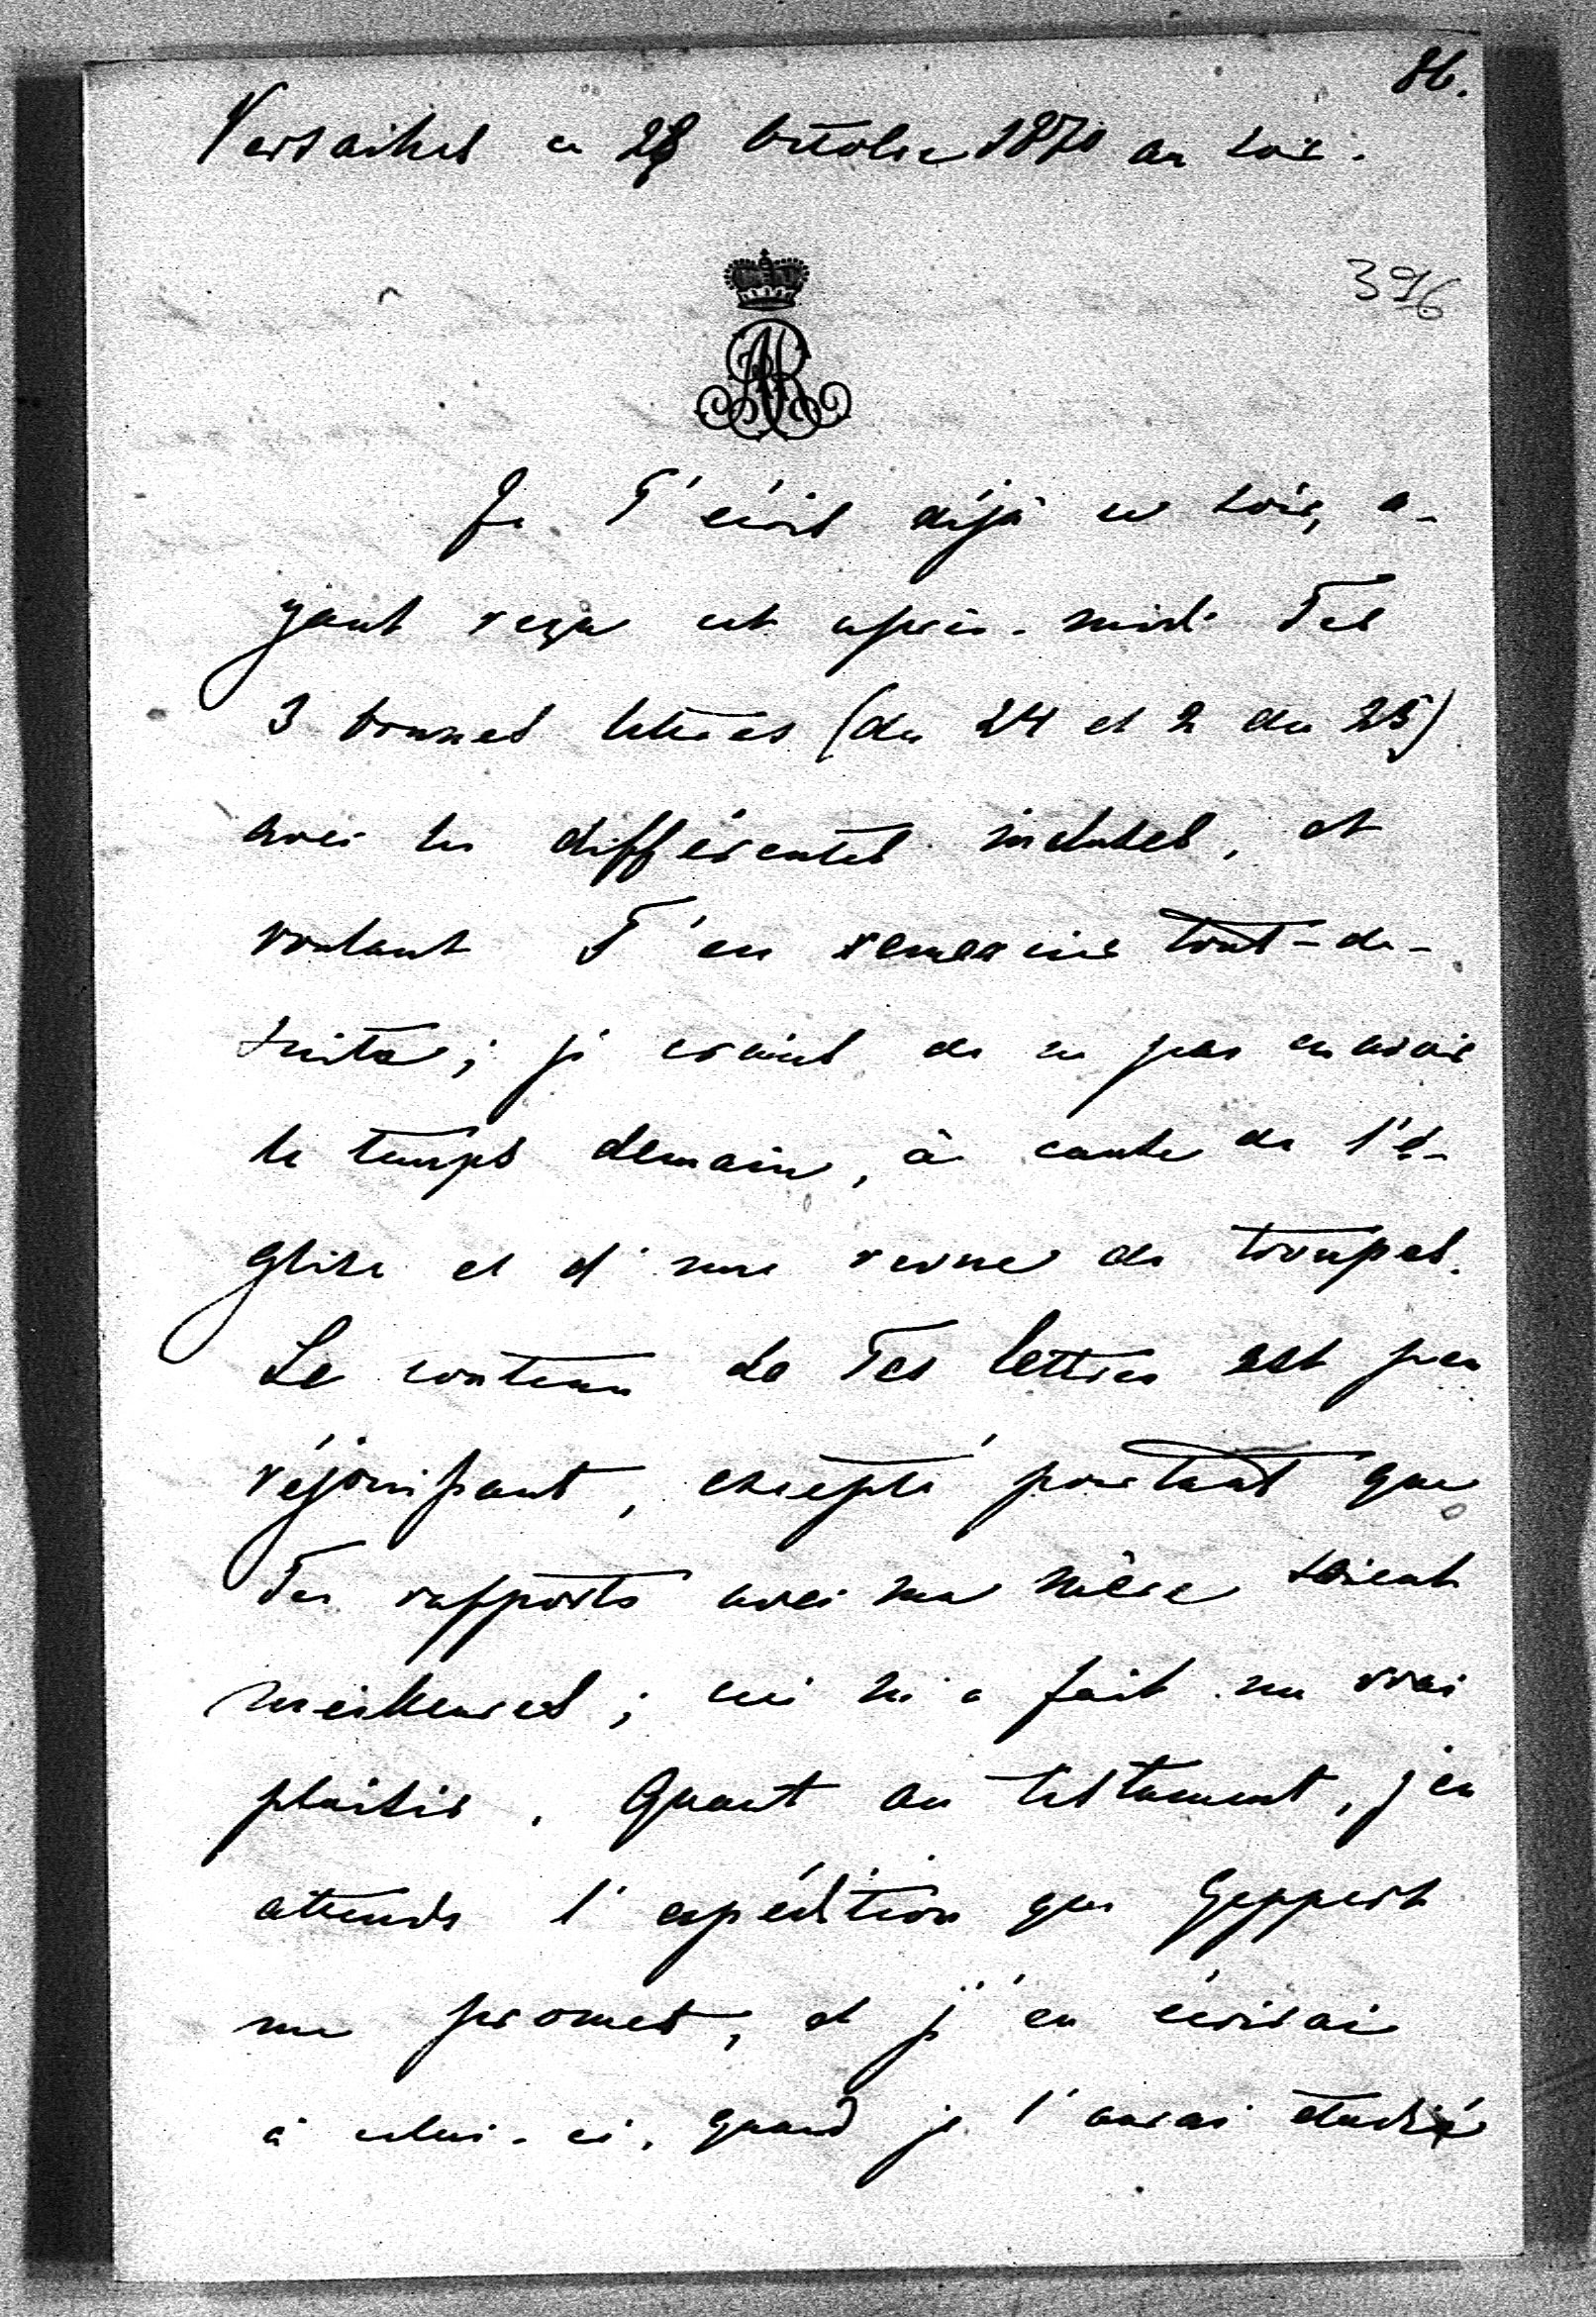 86.
Versailles ce 28 Octobre 1870 au soir.
396
Je T'écris déjà ce soir, a-
yant reçu cet après-midi Tes
3 bonnes lettres (du 24 et 2 du 25)
avec les différentes incluses, et
voulant T'en remercier tout-de-
suite; je crains de ne pas en avoir
le temps demain, à cause de l'é-
glise et d'une revue de troupes.
Le contenu de Tes lettres est peu
réjouissant, excepté pourtant que
Tes rapports avec ma mère soient
meilleures; ceci m'a fait un vrai
plaisir. Quant au testament, j'en
attends l'expédition que Geppert
me promet, et j'en écrirai
à celui-ci, quand je l'aurai étudié